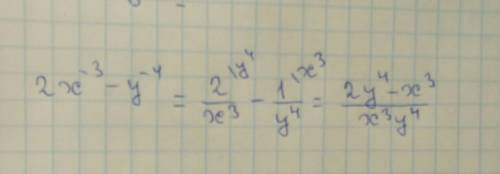 2x⁻³ - y⁻⁴ = 2^{\y⁴}/x³ - 1^{\x³}/y⁴ = (2y⁴ - x³)/(x³y⁴)